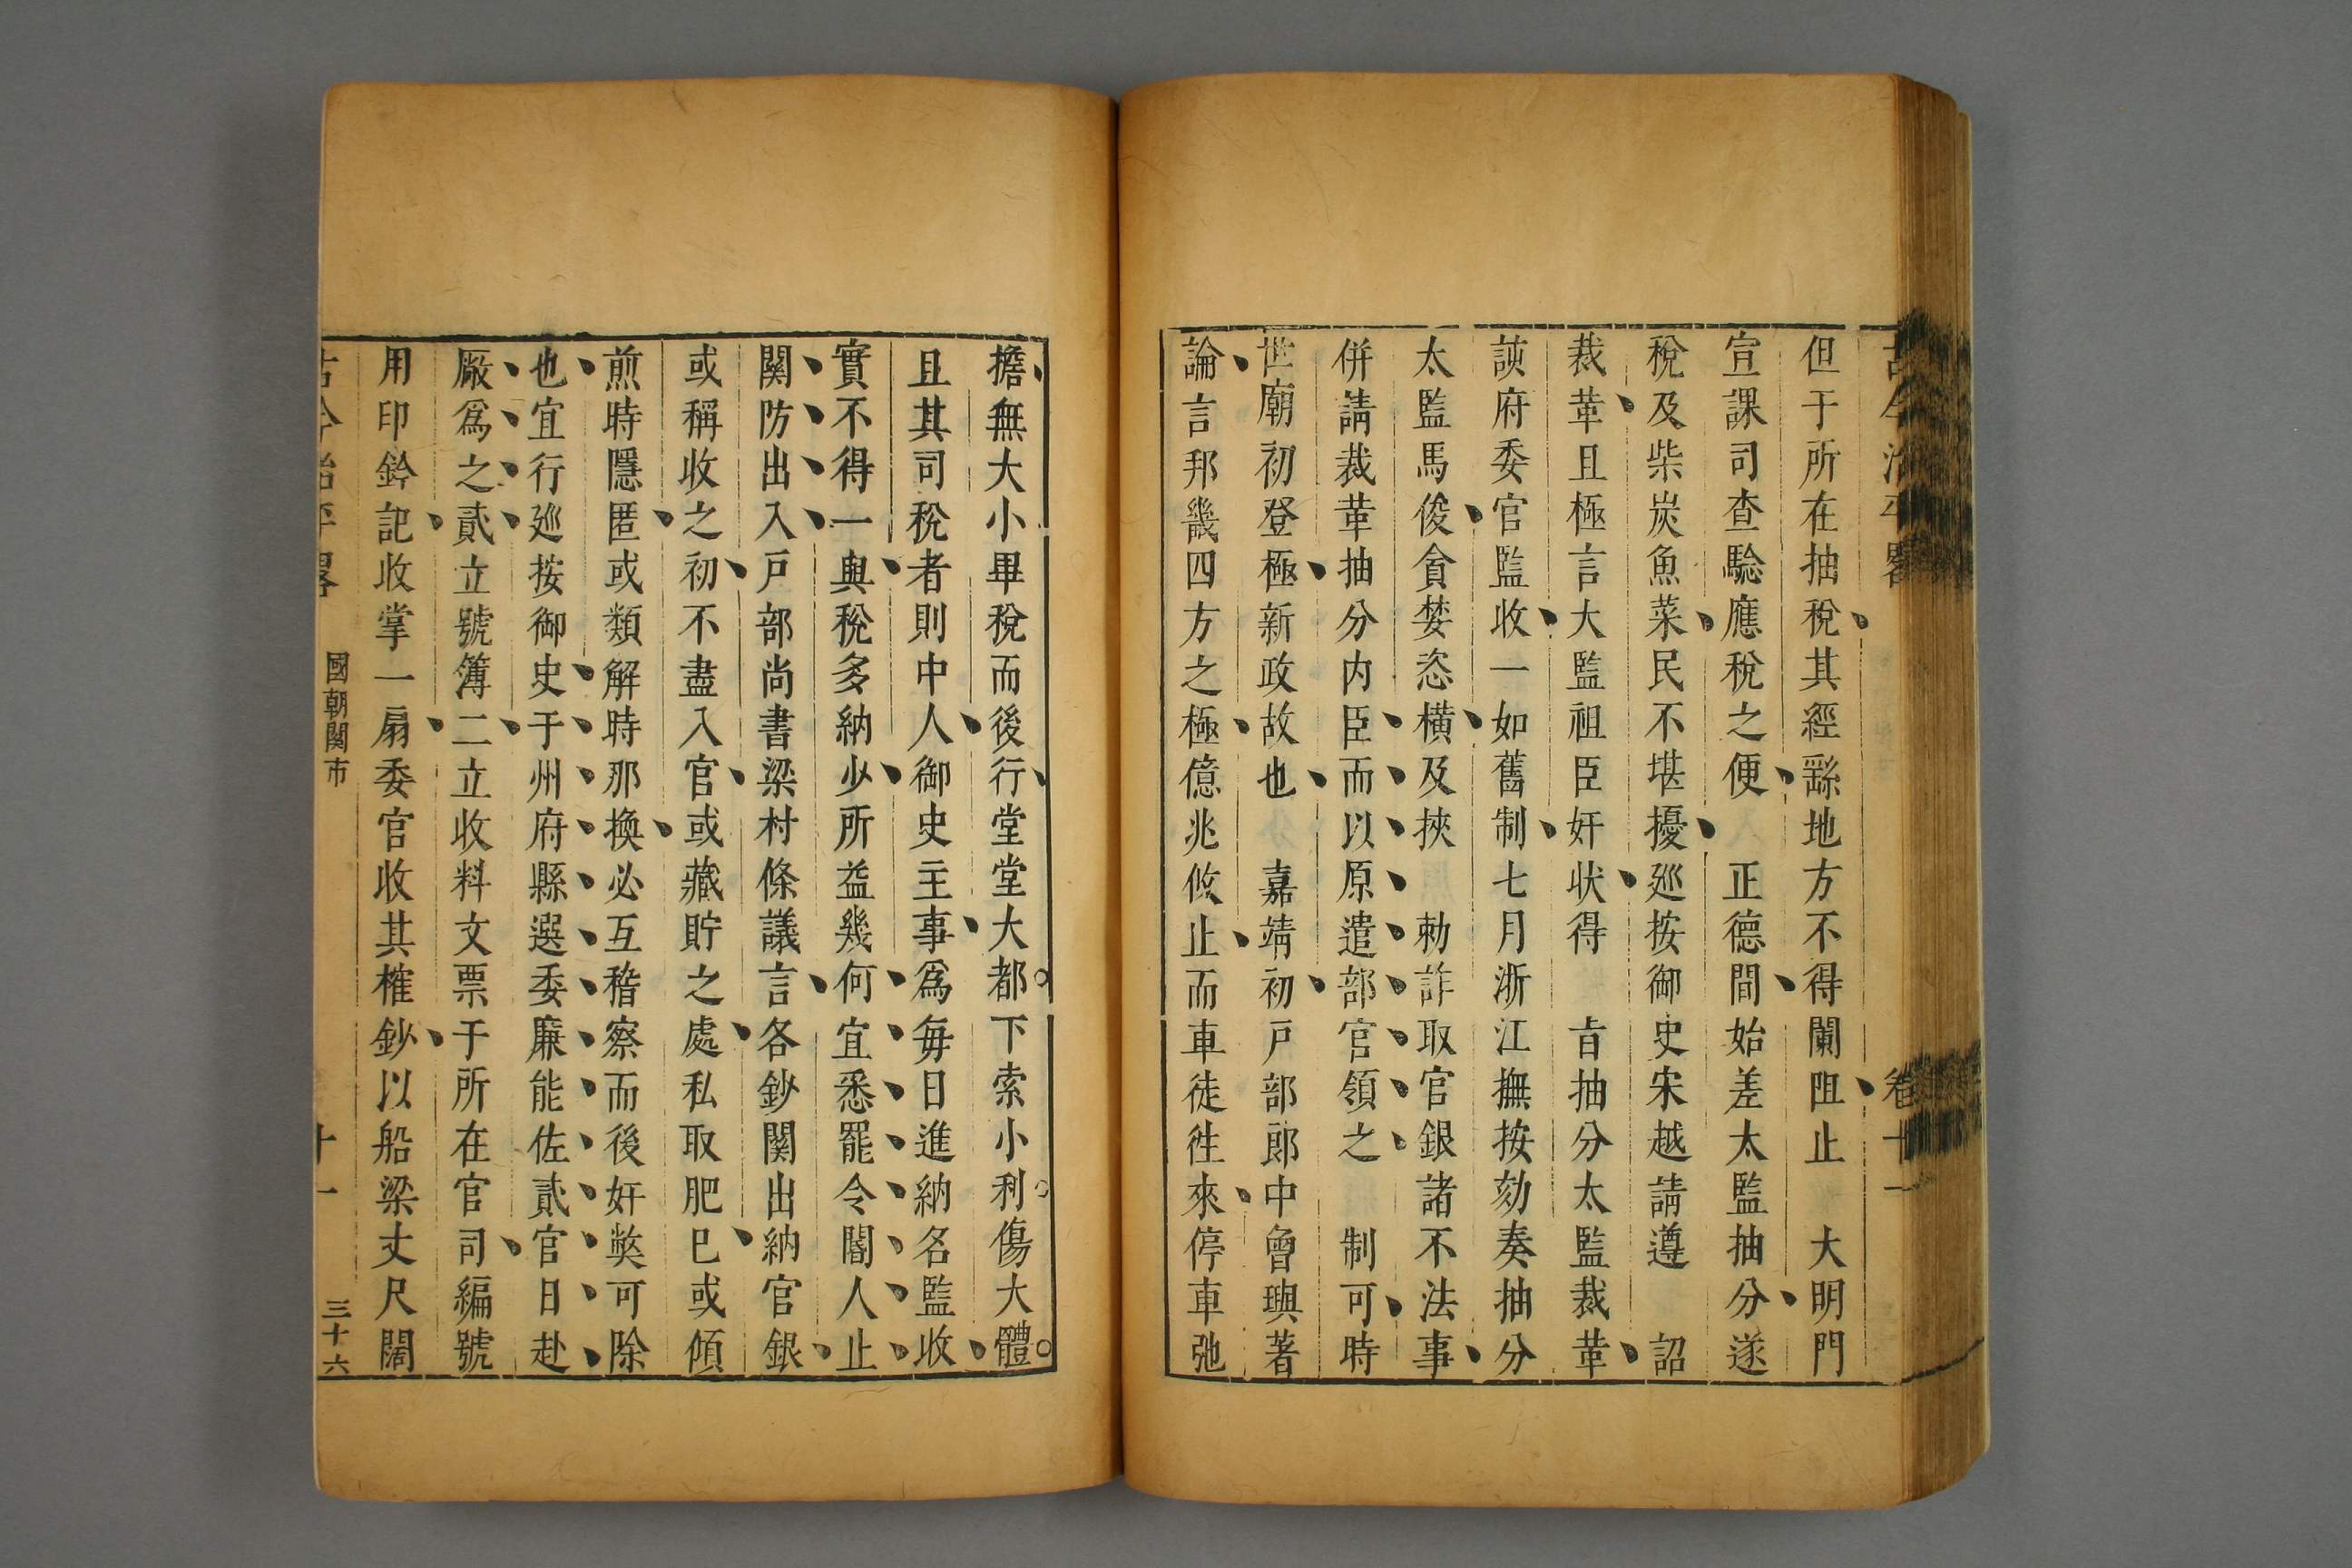 古今治平畧 卷十一
但于所在抽稅其經繇地方不得闌阻止 大明門
宣課司查驗應稅之便 正德間始差太監抽分遂
稅及柴炭魚菜民不堪擾廵按御史宋越請遵 詔
裁革且極言大監祖臣奸狀得 旨抽分太監裁革
該府委官監收一如舊制七月浙江撫按劾奏抽分
太監馬俊貪婪恣橫及挾 勅詐取官銀諸不法事
併請裁革抽分内臣而以原遣部官領之 制可時
世廟初登極新政故也 嘉靖初戸部郎中曾璵著
論言邦畿四方之極億兆攸止而車徒徃來停車弛
擔無大小畢稅而後行堂堂大都下索小利傷大體
且其司稅者則中人御史主事爲每日進納名監收
實不得一與稅多納少所益幾何宜悉罷令閽人止
関防出入戸部尚書梁村條議言各鈔関出納官銀
或稱收之初不盡入官或藏貯之處私取肥已或傾
煎時隱匿或類解時那換必互稽察而後奸獘可除
也宜行廵按御史于州府縣選委廉能佐貳官日赴
厰爲之貳立號簿二立收料文票于所在官司編號
用印鈐記收掌一扇委官收其榷鈔以船梁丈尺闊
古今治平畧 國朝関市 十一 三十六